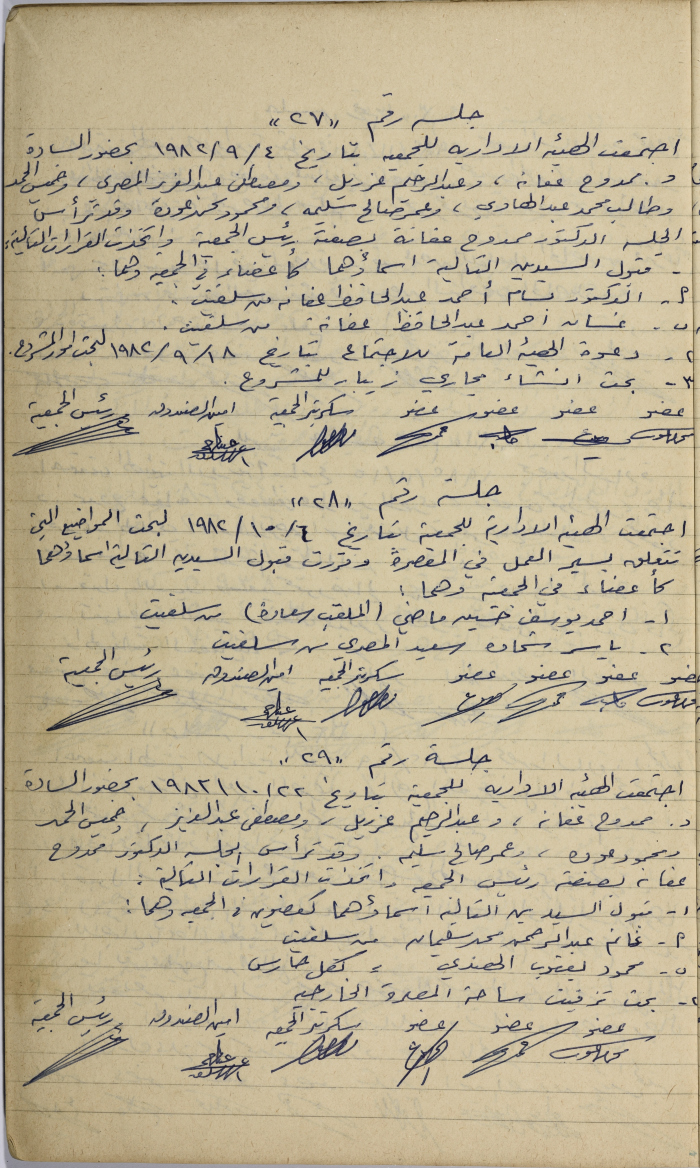 جلسه رقم "٢٧"
اجتمعت الهيئه الاداريه للجمعيه بتاريخ ١٩٨٢/٩/٤ بحضور السادة
د. ممدوح عفانه ، وعبدالرحيم عزريل ، ومصطفى عبدالعزيز المصري ، وخميس الحمد
وطالب محمد عبدالهادي ، وعمر صالح سليمه ، ومحمود محمد عودة وقد ترأس
الجلسه الدكتور ممدوح عفانة بصفته رئيس الجمعية واتخذت القرارات التالية:
- قبول السيدين التالية اسماؤهما كأعضاء في الجمعيه وهما:
٩- الدكتور بسام أحمد عبدالحافظ عفانه من سلفيت .
ب- غسان احمد عبدالحافظ عفانة من سلفيت .
٢- دعوة الهيئه العامة للاجتماع بتاريخ ١٩٨٢/٩/١٨ لبحث امور المشروع.
٣- بحث انشاء مجاري زيبار للمشروع .
عضو عضو عضو عضو سكرتير الجمعية امين الصندوق رئيس الجمعية
جلسة رقم "٢٨"
اجتمعت الهيئه الادارية للجمعية بتاريخ ١٩٨٢/١٠/٤ لبحث المواضيع التي
تتعلق بسير العمل في المعصرة وقررت قبول السيدين التالية اسماؤهما
كأعضاء في الجمعيه وهما :
١- احمد يوسف حسين ماضي (الملقب سعادة) من سلفيت
٢- ياسر شحاده سعيد المصري من سلفيت
عضو عضو عضو عضو سكرتير الجمعيه امين الصندوق رئيس الجمعية
جلسة رقم "٢٩"
اجتمعت الهيئه الاداريه للجمعية بتاريخ ١٩٨٢/١٠/٢٢ بحضور السادة
د. ممدوح عفانه ، وعبدالرحيم عزريل ، ومصطفى عبدالعزيز ، وخميس الحمد
ومحمود عوده ، وعمر صالح سليمه . وقد ترأس الجلسه الدكتور ممدوح
عفانه بصفته رئيس الجمعيه واتخذت القرارات التالية :
١- قبول السيدين التاليه اسماؤهما كعضوين في الجمعيه وهما :
٩- غانم عبدالرحمن محمد سليمان من سلفيت
ب- محمود يعقوب الهندي = كفل حارس
٢- بحث تزفيت ساحة المعصرة الخارجيه
عضو عضو عضو سكرتير الجمعيه امين الصندوق رئيس الجمعية